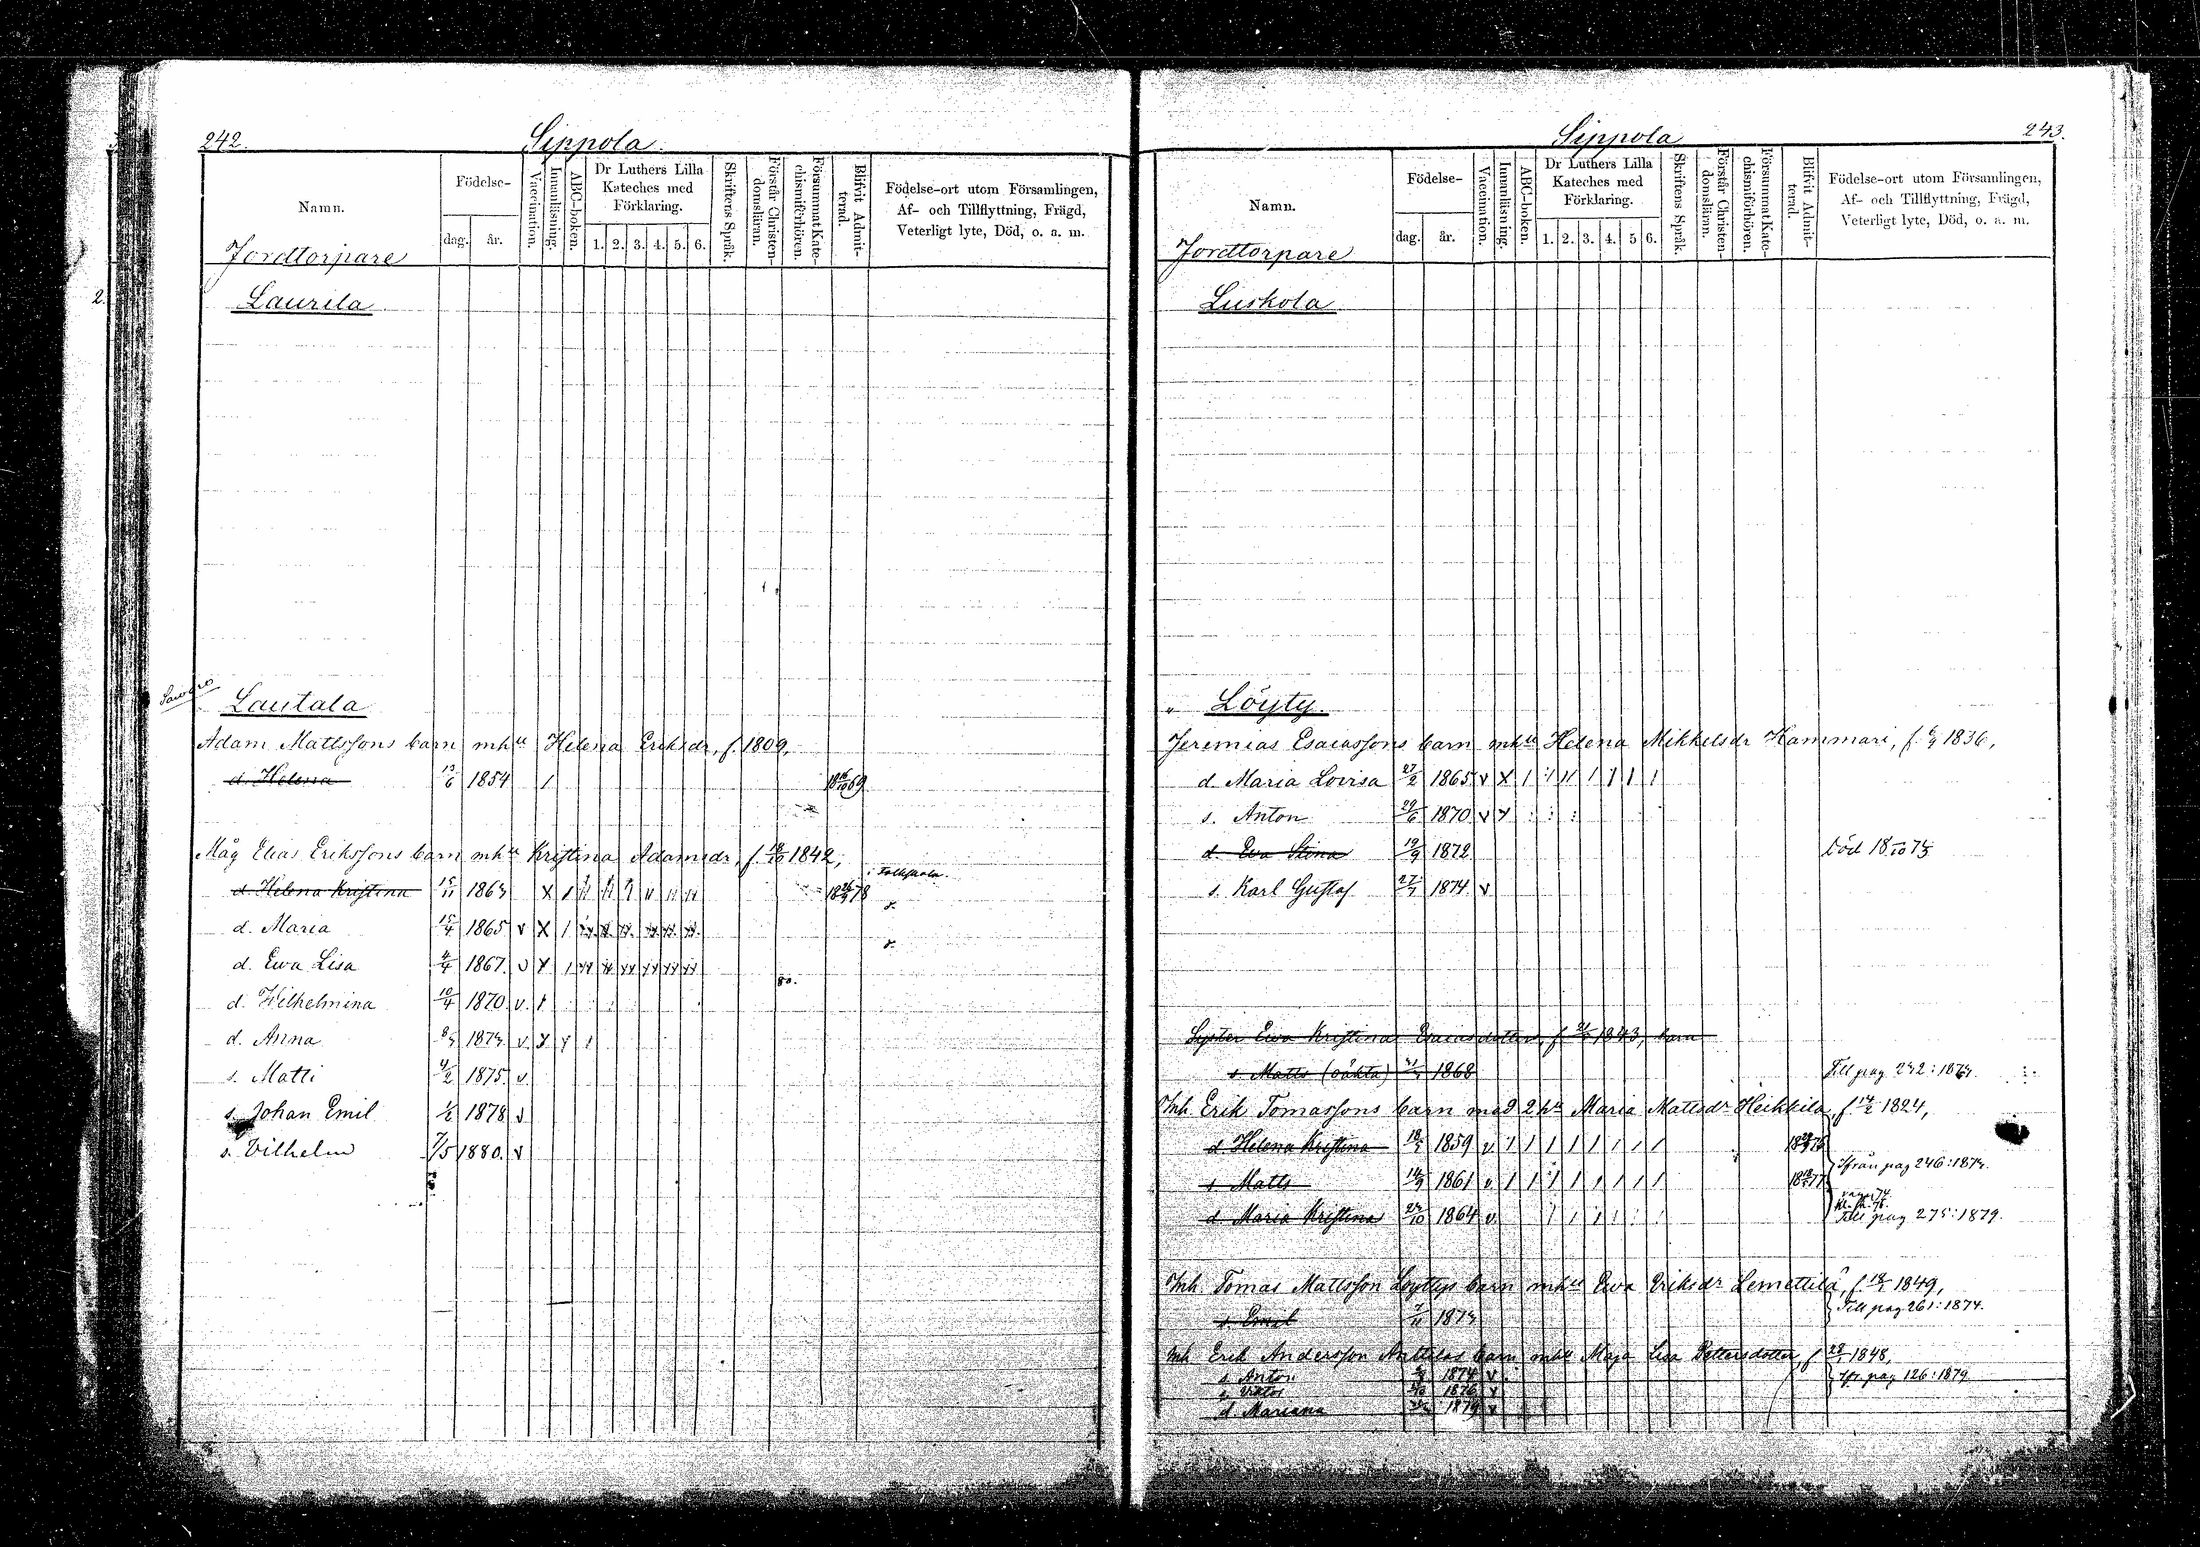 242.
Sippola.
Namn.
Födelse-
dag.
år.
Vaccination.
Innanläsning.
ABC-boken.
Dr Luthers Lilla Kateches med Förklaring.
1. 2. 3. 4. 5. 6.
Skriftens Språk.
Förstår Christendomsläran.
Försummat Katechismiförhören.
Blifvit Admitterad.
Födelse-ort utom Församlingen,
Af- och Tillflyttning, Frägd,
Veterligt lyte, Död, o. a. m.
Jordtorpare
2.
Laurila
Lautala
Adam Mattssons barn mhu Helena Eriksdr, f. 1809,
d. Helena 13/6 1854 / 18 16/10 69
Måg Elias Erikssons barn mhu Kristina Adamsdr, f. 18/10 1842,
i Folkskola.
d. Helena Kristina 15/11 1863 X
d. Maria 15/4 1865 v X
d. Ewa Lisa 4/4 1867. v
80.
d. Wilhelmina 10/4 1870. v.
d. Anna 1873. v.
s. Matti 4/2 1875. v.
s. Johan Emil 1878 v
s. Vilhelm 7/5 1880. v
243.
Sippola
Namn.
Födelse-
dag.
år.
Vaccination.
Innanläsning.
ABC-boken.
Dr Luthers Lilla Kateches med Förklaring.
1. 2. 3. 4. 5 6.
Skriftens Språk.
Förstår Christendomslärn.
Försummat Katechismiförhören.
Blifvit Admitterad.
Födelse-ort utom Församlingen,
Af- och Tillflyttning, Frägd,
Veterligt lyte, Död, o. a. m.
Jordtorpare
Luskola
" Löyty.
Jeremias Esaiassons barn mhu Helena Mikkelsdr Kammari, f. 1836,
d. Maria Lovisa 27/2 1865 v X
s. Anton 29/6 1870 v
d. Eva Stina 19/9 1872 Död 18 /10 73
s. Karl Gustaf 1874 v
Syster Ewa Kristina Esaiasdotter, f. 1843, barn
s. Matts (oäkta) 1868 Till pag 232:1873.
Inh. Erik Tomassons barn med 2 hu Maria Mattsdr Heikkilä, f. 14/2 1824,
d. Helena Kristina 1859 v.
Ifrån pag 246:1873.
s. Matts 14/9 1861 v.
d. Maria Kristina 24/10 1864 v. Till pag 275:1879.
Inh. Tomas Mattsson Löyttys barn mhu Ewa Eriksdr Lemettilä, f. 1849,
s. Emil 1873 Till pag 261:1874.
Inh. Erik Andersson Anttilas barn mhu Maja Lisa Pettersdotter, f. 1848,
s. Anton 1874 v Ifr. pag 126:1879
s. Viktor 1876 v
d. Mariana 1879 v